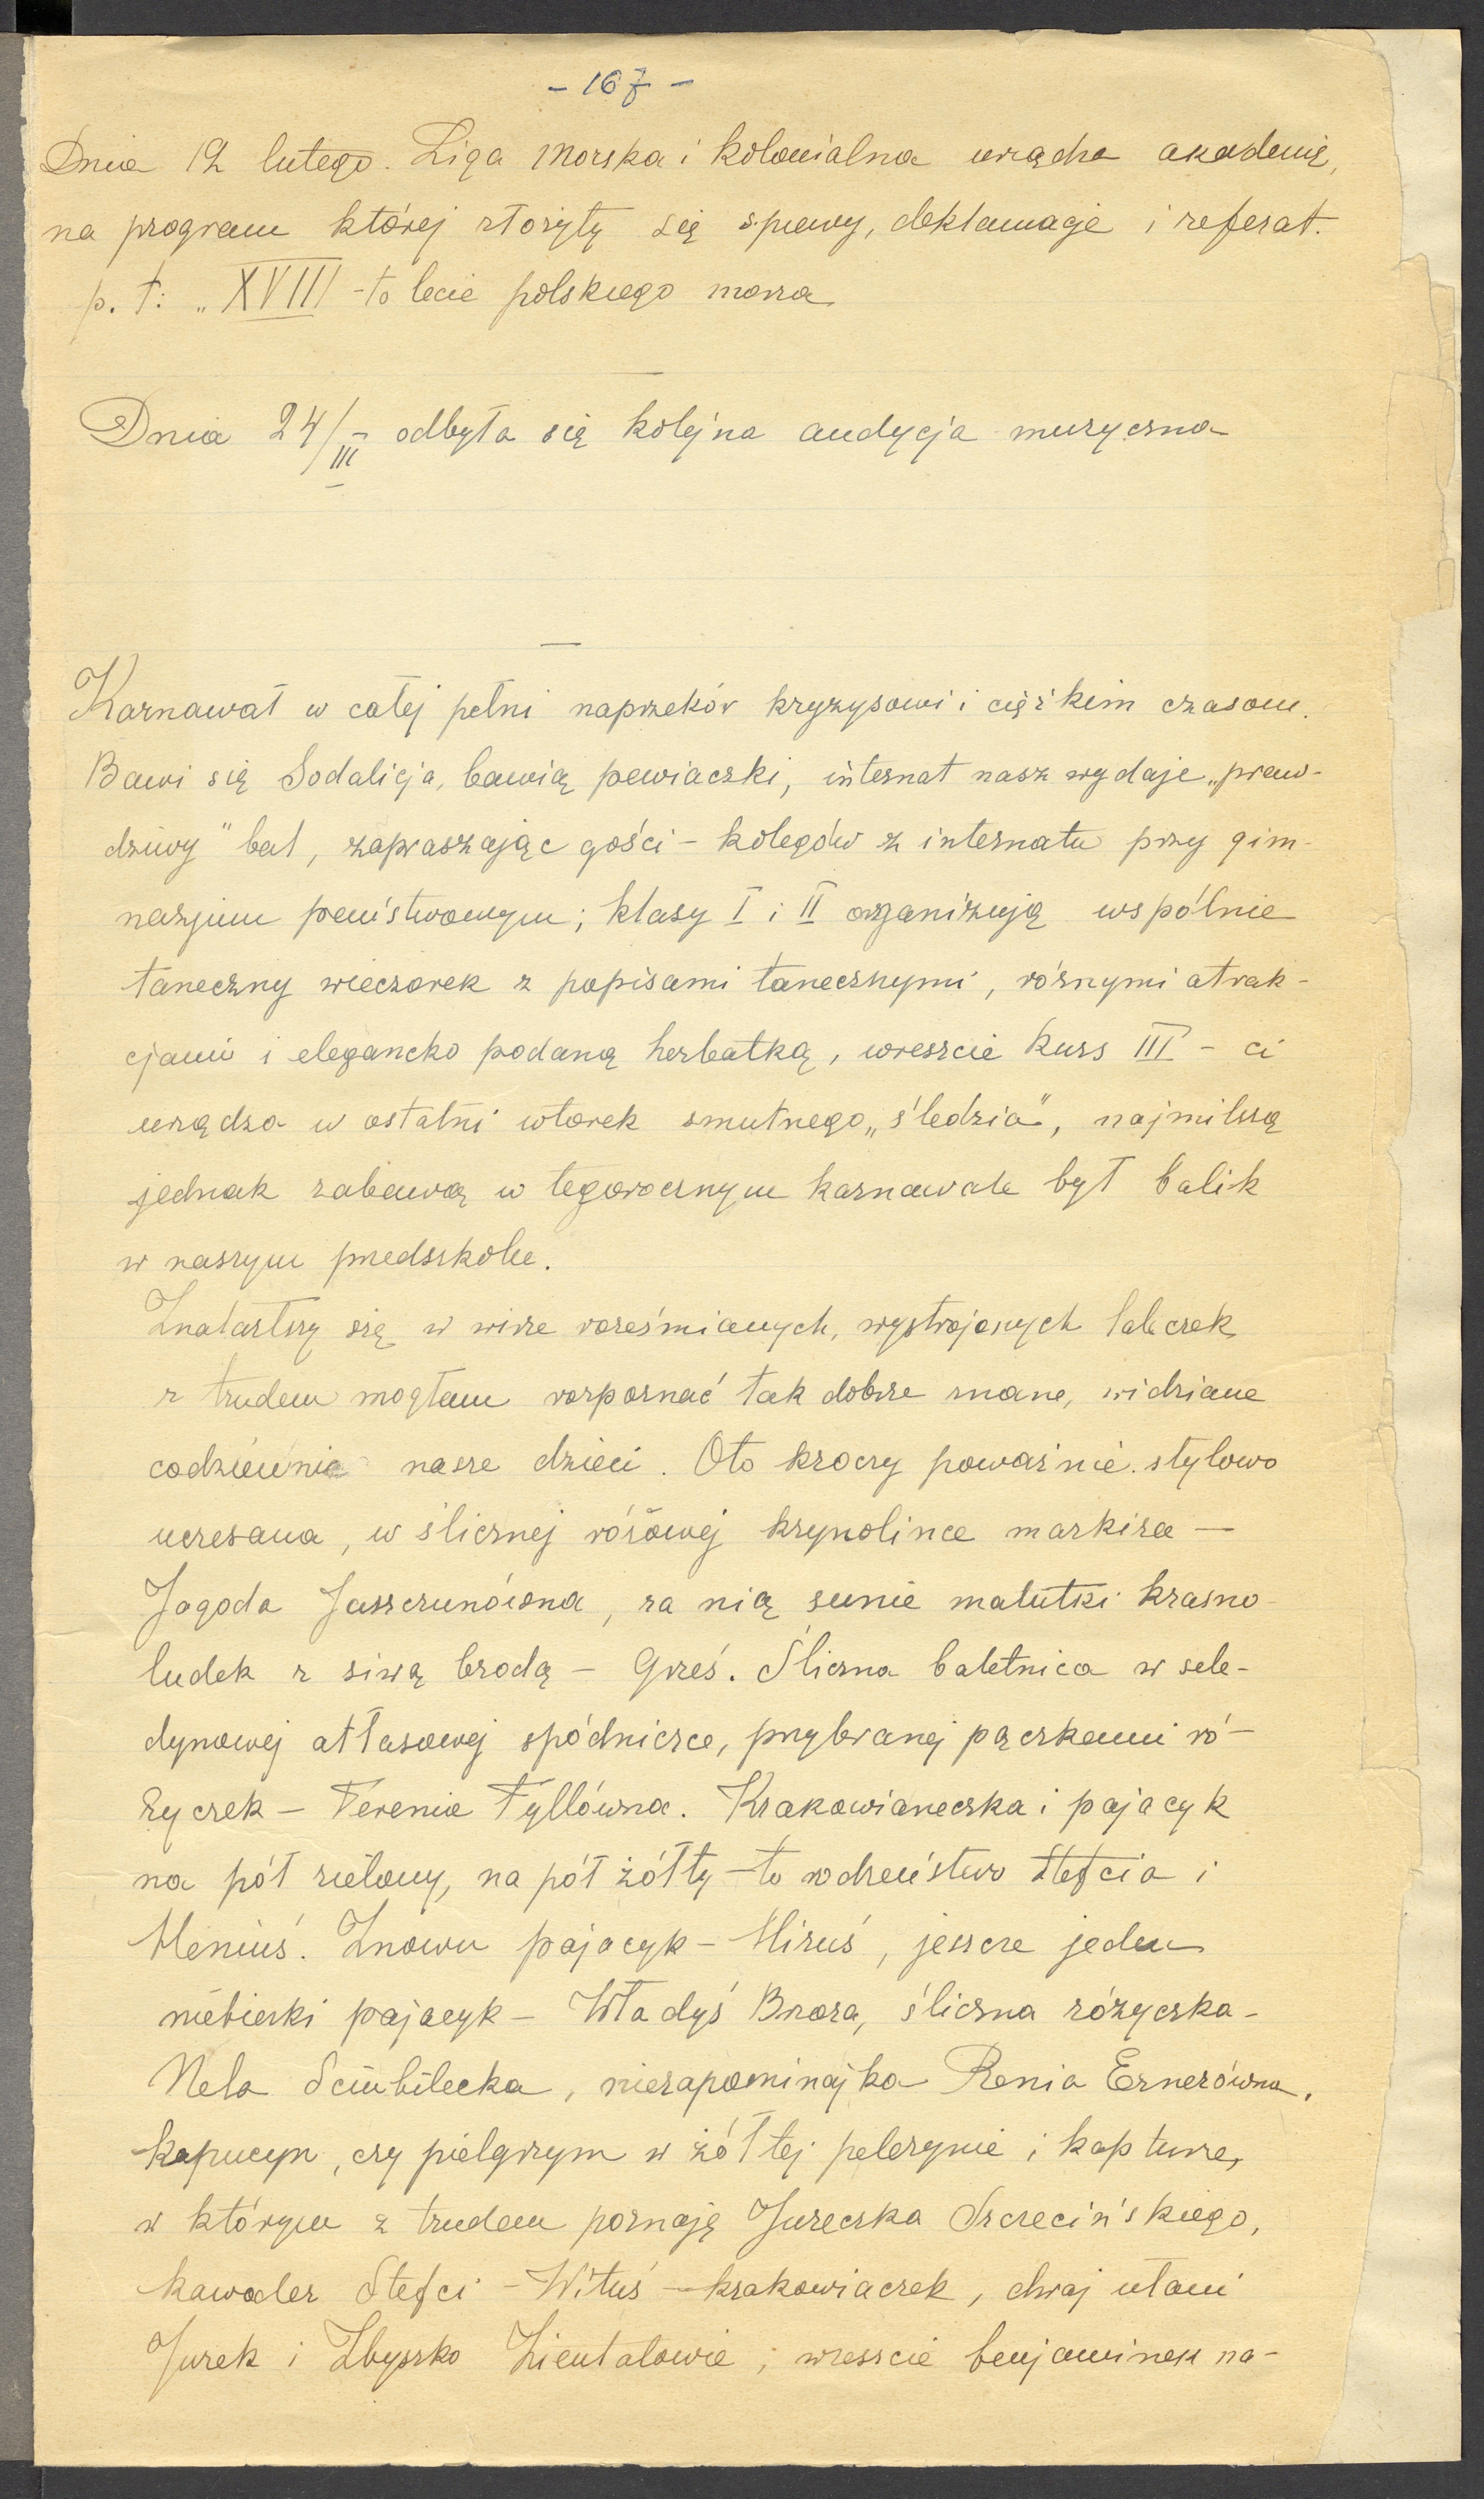 - 167 -
Dnia 12 lutego. Liga Morska i Kolonialna urządza akademię,
na program której złożyły się śpiewy, deklamacje i referat.
p. t: „XVIII-to lecie polskiego morza
Dnia 24/III - odbyła się kolejna audycja muzyczna
Karnawał w całej pełni naprzekór kryzysowi i ciężkim czasom.
Bawi się Sodalicja, bawią pewiaczki, internat nasz wydaje „praw-
dziwy" bal, zapraszając gości - kolegów z internatu przy gim-
nazjum państwowym; klasy I i II organizują wspólnie
taneczny wieczorek z popisami tanecznymi, różnymi atrak-
cjami i elegancko podaną herbatką, wreszcie kurs III - ci
urządza w ostatni wtorek smutnego „śledzia", najmilszą
jednak zabawą w tegorocznym karnawale był balik
w naszym przedszkolu.
Znalazłszy się w wirze roześmianych, wystrojonych laleczek
z trudem mogłam rozpoznać tak dobrze znane, widziane
codziennie nasze dzieci. Oto kroczy poważnie. stylowo
uczesana, w ślicznej różowej krynolince markiza —
Jagoda Jaszczunówna, za nią sunie malutki krasno-
ludek z siwą brodą - Grześ. Śliczna baletnica w sele-
dynowej atłasowej spódniczce, przybranej pączkami ró-
życzek - Terenia Tyllówna. Krakowianeczka i pajacyk
na pół zielony, na pół żółty - to rodzeństwo Stefcia i
Heniuś. Znowu pajacyk - Mizuś, jeszcze jeden
niebieski pajacyk - Władyś Brzoza, śliczna różyczka -
Nela Sciubilecka, niezapominajka Renia Ernerówna,
kapucyn, czy pielgrzym w żółtej pelerynie i kapturze,
w którym z trudem poznaję Jureczka Szczecińskiego,
kawaler Stefci - Wituś - krakowiaczek, dwaj ułani
Jurek i Zbyszko Zientalowie, wreszcie benjaminek na-